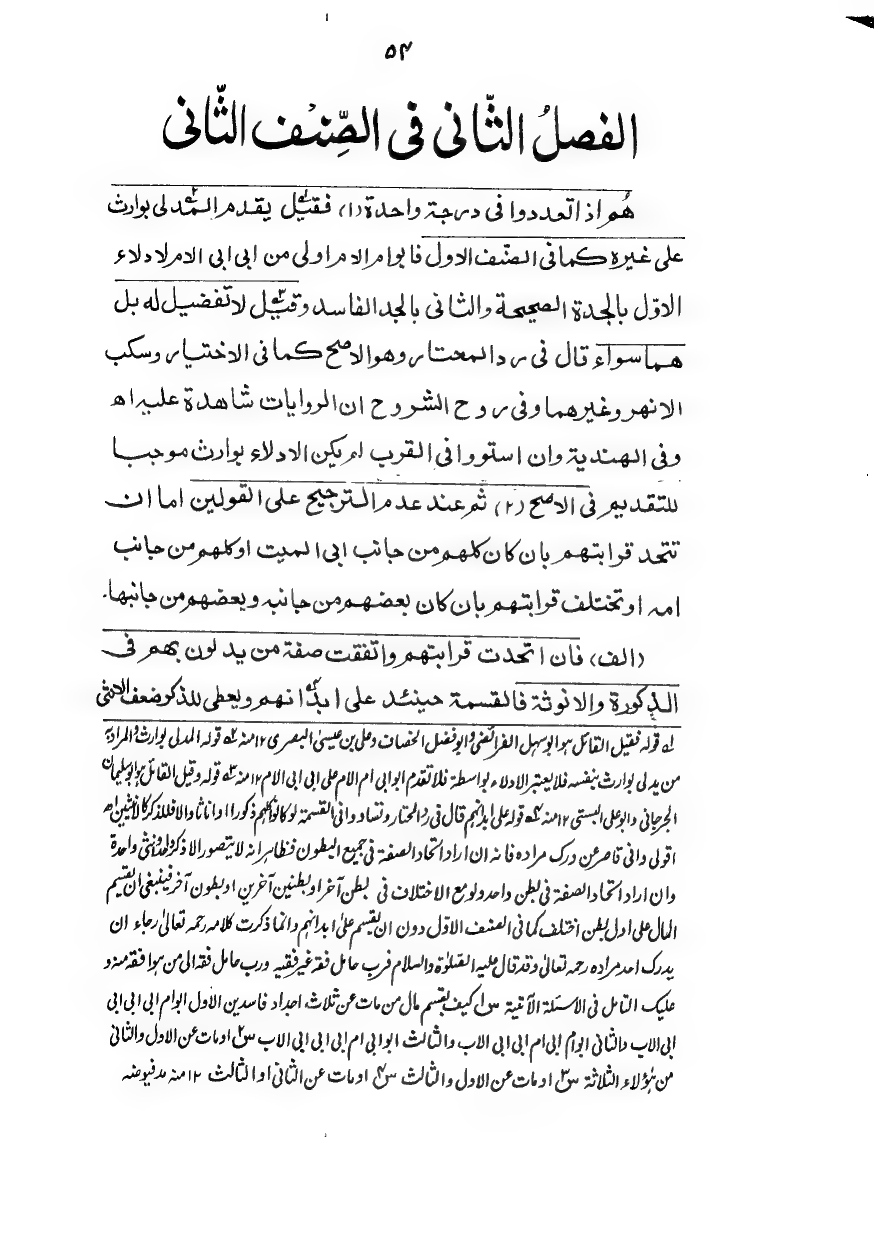 ۵۴
الفصلُ الثّانی فی الصِّنف الثّانی
هُم اذا تعددوا فی درجة واحدة (۱) فقیل یقدم المدلی بوارث
علی غیرہ کما فی الصنّف الاول فابوام الام اولی من ابی ابی الام لادلاء
الاوّل بالجدة الصحیحة والثانی بالجد الفاسد وقیل لا تفضیل له بل
هما سواء قال فی رد المحتار وهو الاصح کما فی الاختیار وسکب
الانهر وغیرهما وفی روح الشروح ان الروایات شاهدة علیه اھ
وفی الهندیة وان استووا فی القرب لم یکن الادلاء بوارث موجبا
للتقدیم فی الاصح (۲) ثم عند عدم الترجیح علی القولین اما ان
تتحد قرابتهم بان کان کلهم من جانب ابی المیت او کلهم من جانب
امه او تختلف قرابتهم بان کان بعضهم من جانبه وبعضهم من جانبها.
(الف) فان اتحدت قرابتهم واتفقت صفة من یدلون بهم فی
الذکورة والانوثة فالقسمة حینئذ علی ابدانهم ویعطی للذکر ضعف الانثی
لہ قولہ فقیل القائل ہو ابو سہیل الفرائضی وابو فضل الخصاف وعلی بن عیسیٰ البصری ۱۲ منہ لہ قولہ المدلی بوارث والمراد بہ
من یدلی بوارث بنفسہ فلا یعتبر الادلاء بواسطة فلا تقدم ابو ابی ام الام علی ابی ابی الام ۱۲ منہ لہ قولہ وقیل القائل ہو ابو سلیمان
الجرجانی وابو علی البستی ۱۲ منہ لہ قولہ علی ابدانہم قال فی رد المحتار وتساووا فی القسمة لو کانوا کلہم ذکورا او اناثا والا فللذکر کالانثیین اھ
اقول وانی قاصر عن درک مرادہ فانہ ان اراد اتحاد الصفة فی جمیع البطون فظاہر انہ لا یتصور الا ذکر واحد وانثی واحدة
وان اراد اتحاد الصفة فی بطن واحد ولو مع الاختلاف فی بطن آخر او بطنین آخرین او بطون آخر فینبغی ان یقسیم
المال علی اول بطن اختلف کما فی الصنف الاوّل دون ان یقسم علیٰ ابدانہم وانما ذکرت کلامہ رحمہ تعالیٰ رجاء ان
یدرک احد مرادہ رحمہ تعالیٰ وقد قال علیہ الصلوٰة والسلام فرب حامل فقہ غیر فقیہ ورب حامل فقہ الی من ہو افقہ منہ و
علیک التامل فی الاسئلة الآتیة س۱ کیف یقسم مال من مات عن ثلاث اجداد فاسدین الاول ابو ام ابی ابی ابی
ابی الاب والثانی ابو ام ابی ام ابی ابی الاب والثالث ابو ابی ام ابی ابی ابی الاب س۲ او مات عن الاول والثانی
من ہٰؤلاء الثلاثة س۳ او مات عن الاول والثالث س۴ او مات عن الثانی او الثالث ۱۲ منہ مدفیوضہ